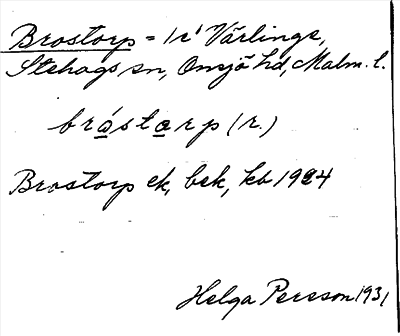 Brostorp = 1 r' Värlinge,
Stehags sn, Onsjö hd, Malm. l.
bråstarp (r.)
Brostorp ek, bek, kb 1924
Helga Persson 1931